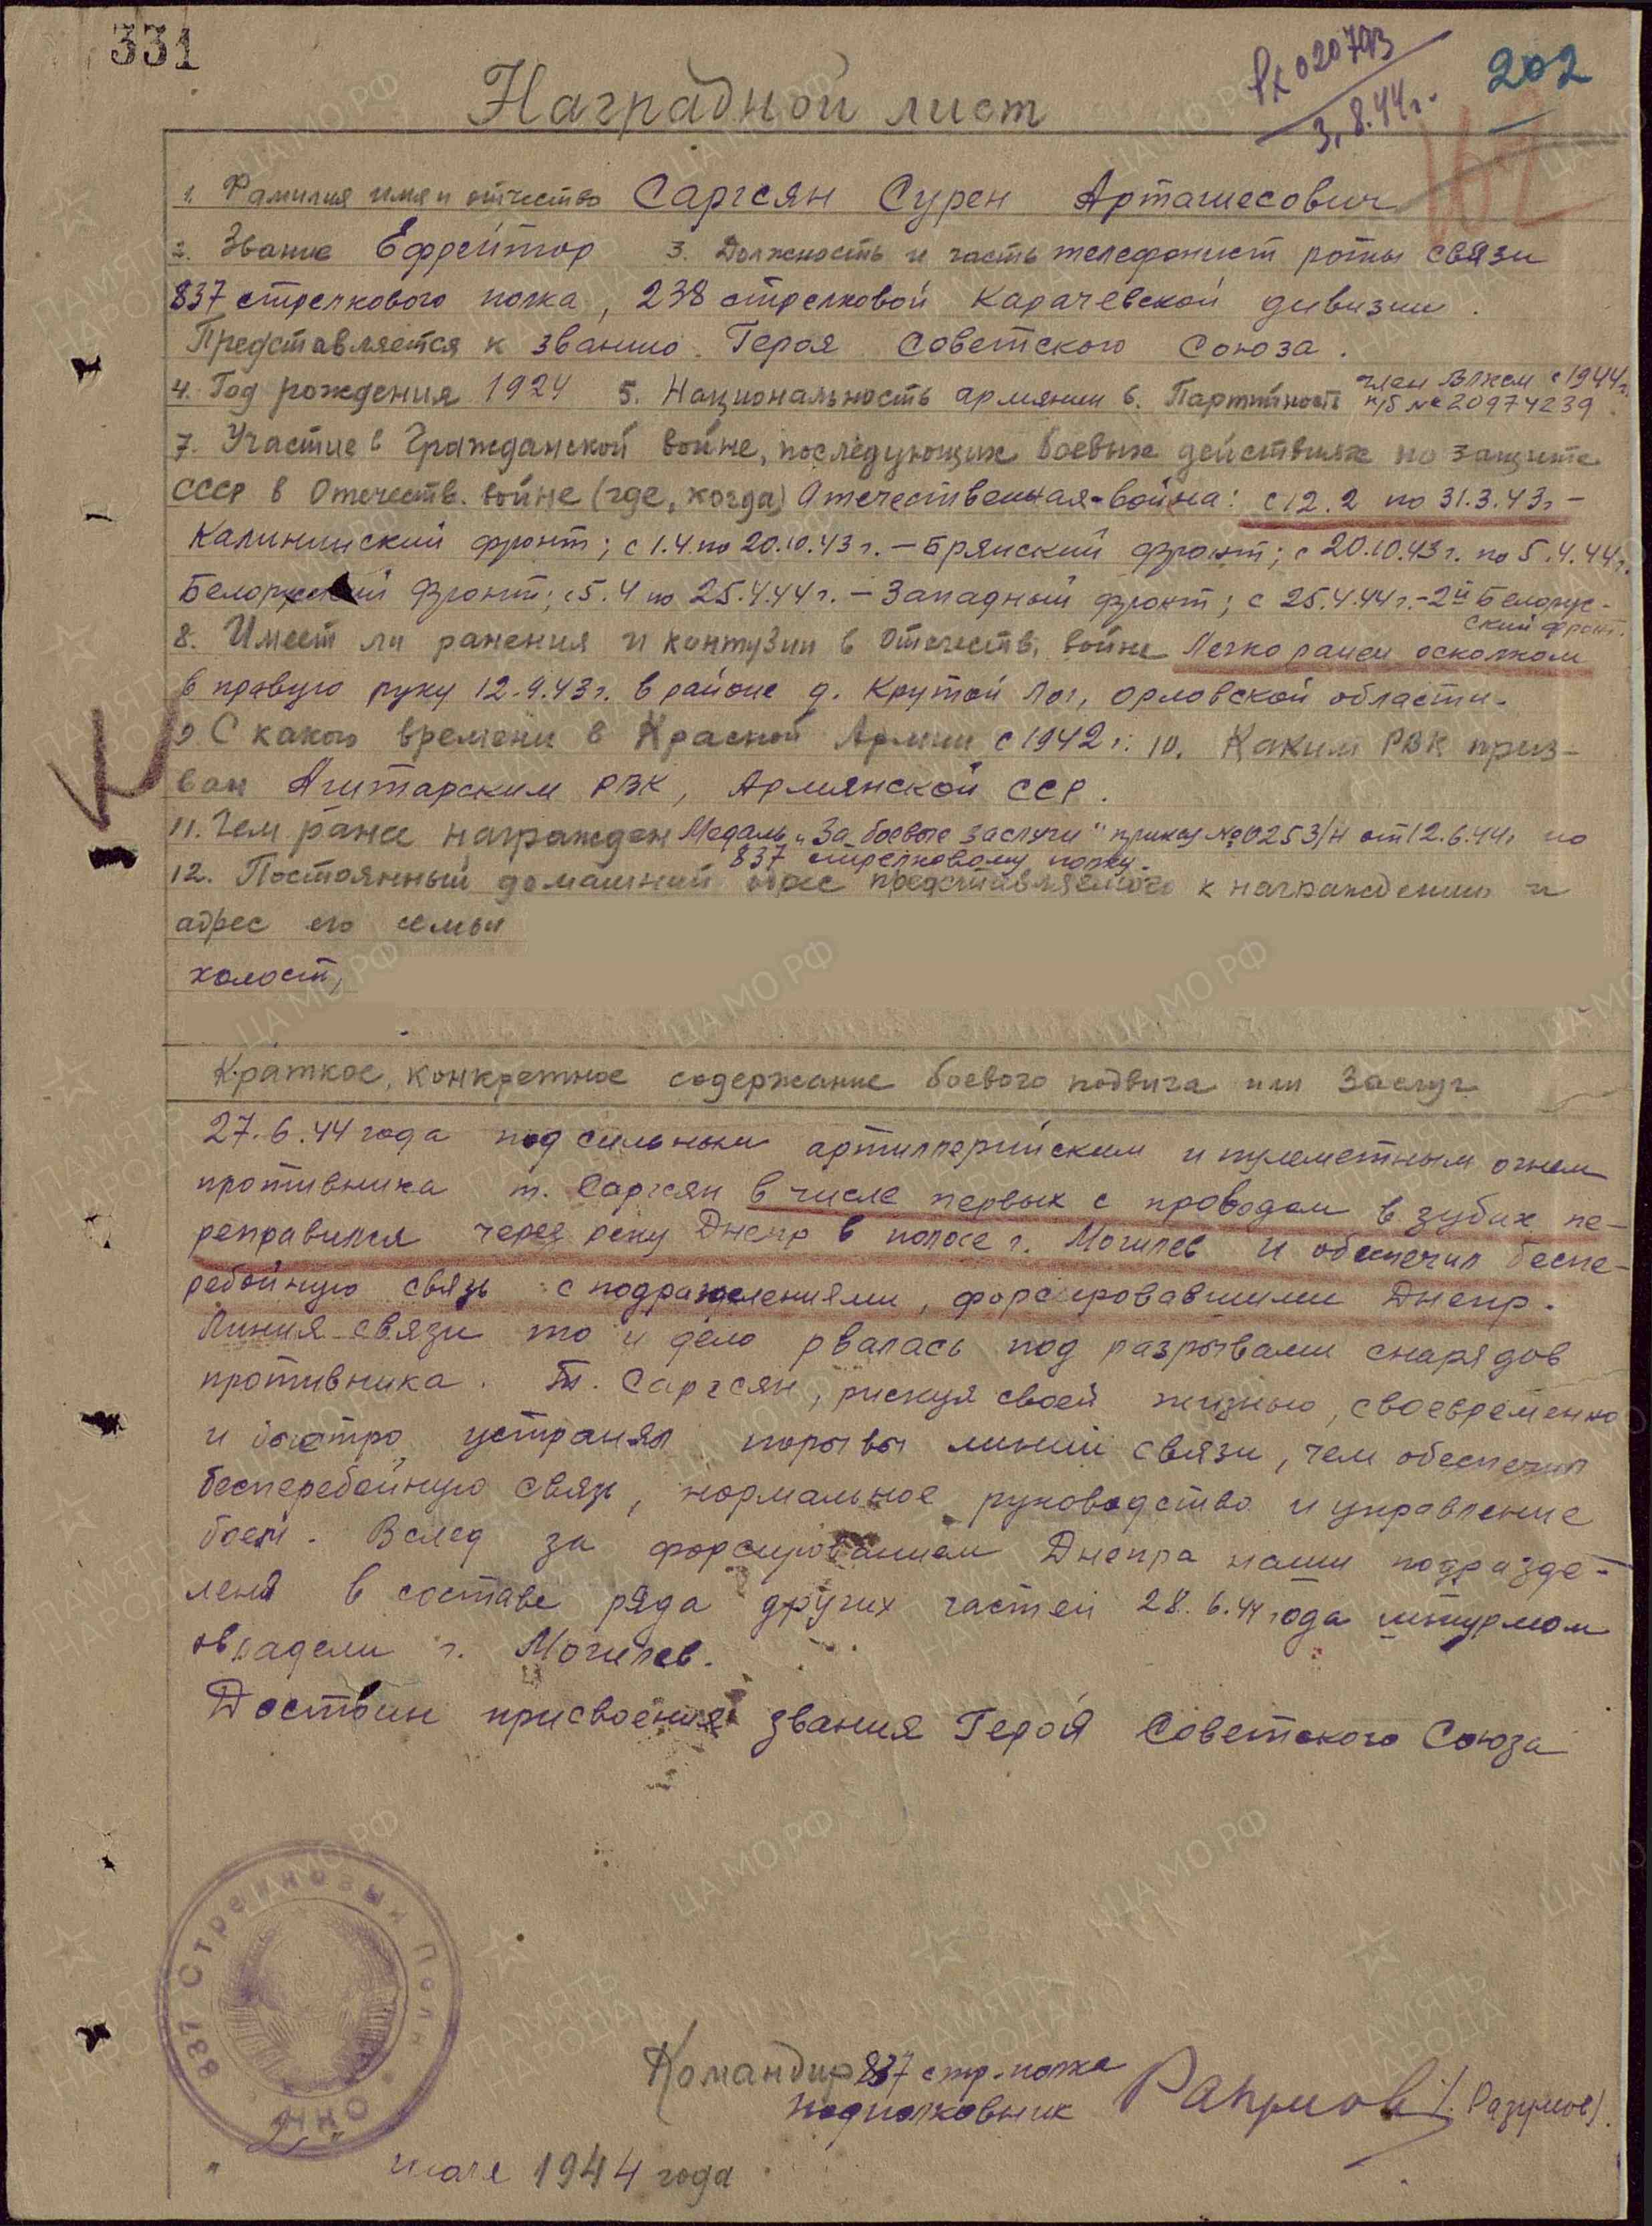 331
202
3.8.44 г.
Наградной лист
1. Фамилия имя и отчество Саргсян Сурен Арташесович
2. Звание Ефрейтор 3. Должность и часть телефонист роты связи
837 стрелкового полка, 238 стрелковой Карачевской дивизии.
Представляется к званию Героя Советского Союза.
4. Год рождения 1924 5. Национальность армянин 6. Партийность член ВЛКСМ с 1944 г.
к/б № 20974239.
7. Участие в Гражданской войне, последующих боевых действиях по защите
СССР в Отечеств. войне (где, когда) Отечественная война: с 12.2 по 31.3.43 г. –
Калининский фронт; с 1.4. по 20.10.43 г. – Брянский фронт; с 20.10.43 г. по 5.4.44 г.
Белорусский фронт; с 5.4 по 25.4.44 г. – Западный фронт; с 25.4.44 г. – 2й Белорус-
ский фронт.
8. Имеет ли ранения и контузии в Отечеств. войне Легко ранен осколком
в правую руку 12.9.43 г. в районе д. Крутой Лог, Орловской области.
9. С какого времени в Красной Армии с 1942 г. 10. Каким РВК приз-
ван Агитарским РВК, Армянской ССР.
11. Чем ранее награжден Медаль „За боевые заслуги" приказ № 0253/н от 12.6.44 г. по
837 стрелковому полку.
12. Постоянный домашний адрес представляемого к награждению и
адрес его семьи
холост,
Краткое, конкретное содержание боевого подвига или заслуг
27.6.44 года под сильным артиллерийским и пулеметным огнем
противника т. Саргсян в числе первых с проводом в зубах пе-
реправился через реку Днепр в полосе г. Могилев и обеспечил беспе-
ребойную связь с подразделениями, форсировавшими Днепр.
Линия связи то и дело рвалась под разрывами снарядов
противника. Т. Саргсян, рискуя своей жизнью, своевременно
и быстро устранял порывы линии связи, чем обеспечил
бесперебойную связь, нормальное руководство и управление
боем. Вслед за форсированием Днепра наши подразде-
леня в составе ряда других частей 28.6.44 года штурмом
овладели г. Могилев.
Достоин присвоения звания Героя Советского Союза
837 Стрелковый Полк
Командир 837 стр. полка
подполковник Разумов (Разумов).
" июля 1944 года